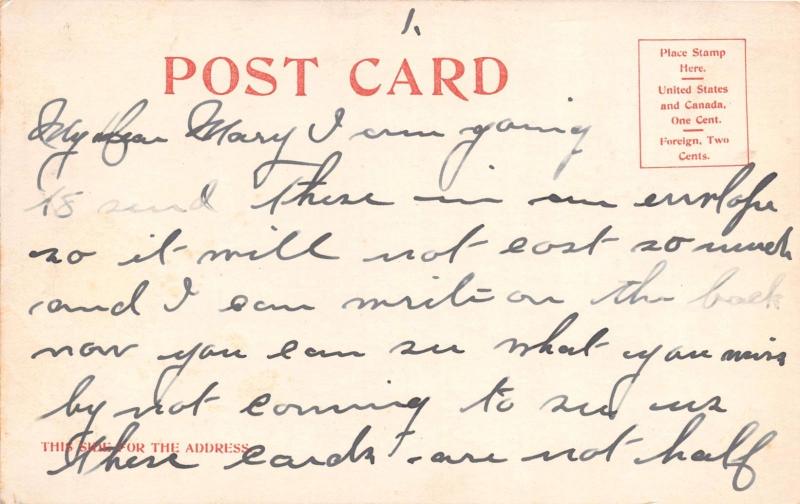 1.
POST CARD
Place Stamp
Here.
United States
and Canada,
One Cent.
Foreign, Two
Cents.
My dear Mary I am going
to send these in an envelope
so it will not cost so much
and I can write on the back
now you can see what you miss
by not coming to see us
THIS SIDE FOR THE ADDRESS
these cards are not half